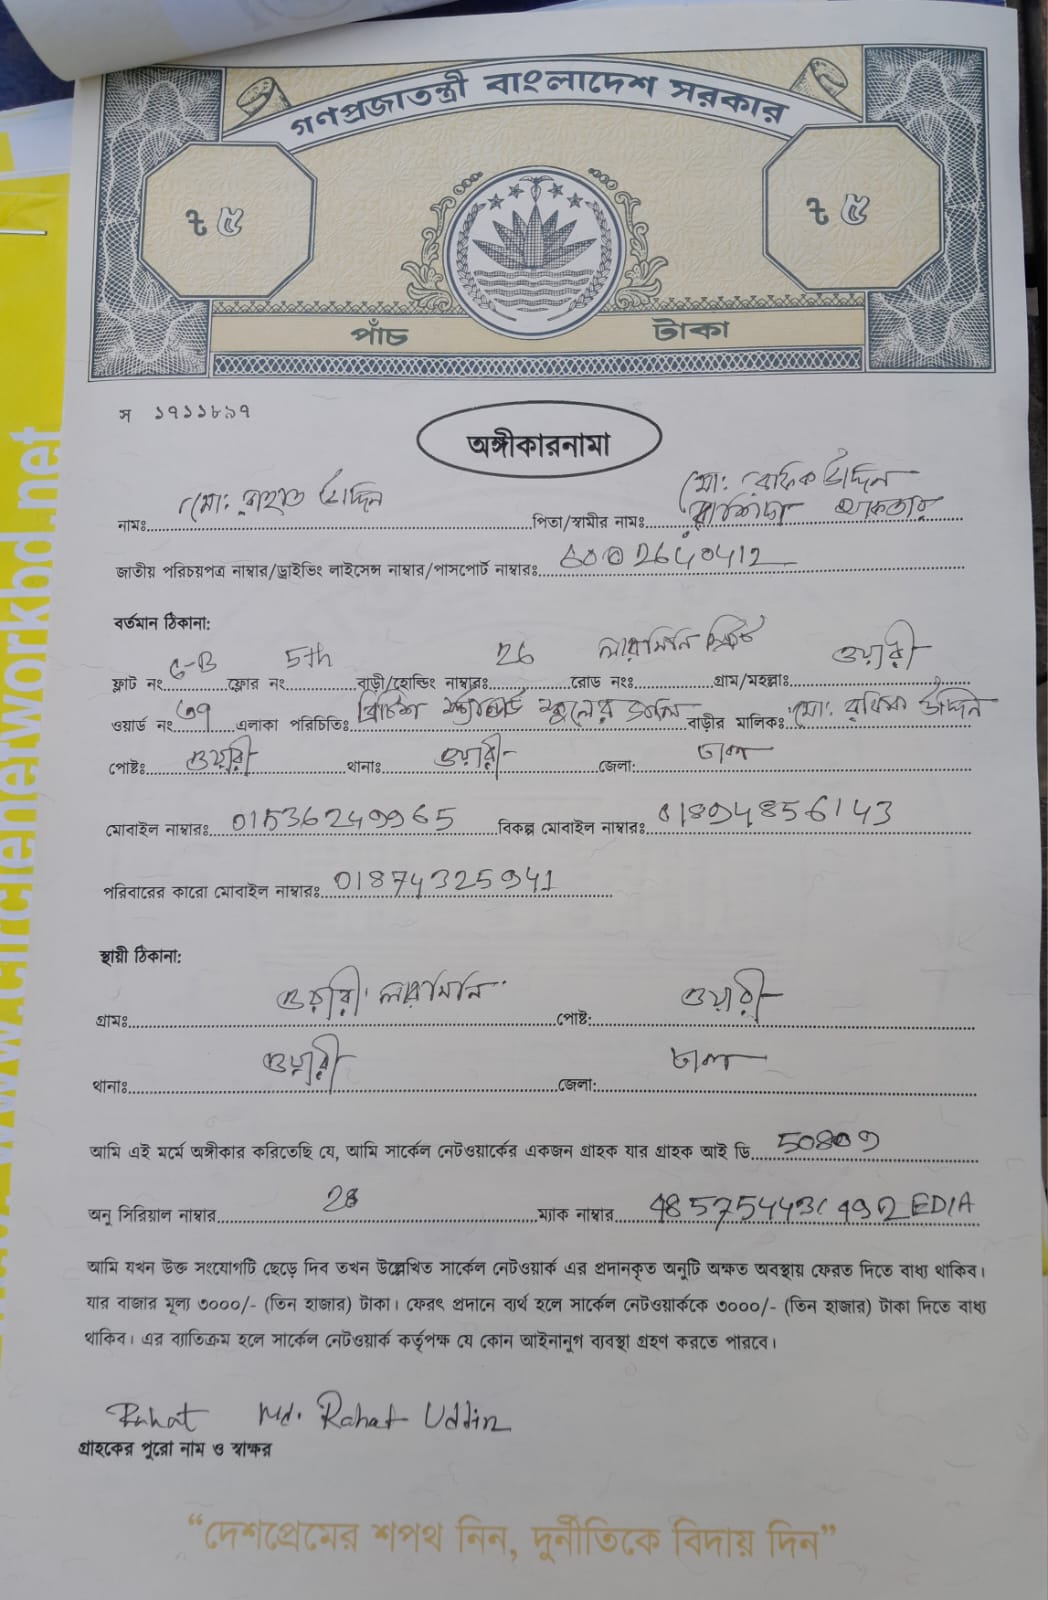 গণপ্রজাতন্ত্রী বাংলাদেশ সরকার
৳ ৫
৳ ৫
পাঁচ টাকা
স ১৭১১৮৯৭
অঙ্গীকারনামা
নামঃ মো: রাহাত উদ্দিন পিতা/স্বামীর নামঃ মো: রফিক উদ্দিন
রাশিদা আকতার
জাতীয় পরিচয়পত্র নাম্বার/ড্রাইভিং লাইসেন্স নাম্বার/পাসপোর্ট নাম্বারঃ 6002640412
বর্তমান ঠিকানা:
ফ্লাট নং 5th ফ্লোর নং বাড়ী/হোল্ডিং নাম্বারঃ 26 রোড নংঃ লারমিনি স্ট্রিট গ্রাম/মহল্লাঃ ওয়ারী
ওয়ার্ড নং এলাকা পরিচিতিঃ ব্রিটিশ স্ট্যান্ডার্ড স্কুলের বাড়ীর মালিকঃ মো: রফিক উদ্দিন
পোষ্টঃ ওয়ারী থানাঃ ওয়ারী জেলা: ঢাকা
মোবাইল নাম্বারঃ 01536249965 বিকল্প মোবাইল নাম্বারঃ 01894856143
পরিবারের কারো মোবাইল নাম্বারঃ 01874325941
স্থায়ী ঠিকানা:
গ্রামঃ ওয়ারী লারমিনি পোষ্ট: ওয়ারী
থানাঃ ওয়ারী জেলা: ঢাকা
আমি এই মর্মে অঙ্গীকার করিতেছি যে, আমি সার্কেল নেটওয়ার্কের একজন গ্রাহক যার গ্রাহক আই ডি 50809
অনু সিরিয়াল নাম্বার ম্যাক নাম্বার
আমি যখন উক্ত সংযোগটি ছেড়ে দিব তখন উল্লেখিত সার্কেল নেটওয়ার্ক এর প্রদানকৃত অনুটি অক্ষত অবস্থায় ফেরত দিতে বাধ্য থাকিব।
যার বাজার মূল্য ৩০০০/- (তিন হাজার) টাকা। ফেরৎ প্রদানে ব্যর্থ হলে সার্কেল নেটওয়ার্ককে ৩০০০/- (তিন হাজার) টাকা দিতে বাধ্য
থাকিব। এর ব্যাতিক্রম হলে সার্কেল নেটওয়ার্ক কর্তৃপক্ষ যে কোন আইনানুগ ব্যবস্থা গ্রহণ করতে পারবে।
Rahat Md. Rahat Uddin
গ্রাহকের পুরো নাম ও স্বাক্ষর
“দেশপ্রেমের শপথ নিন, দুর্নীতিকে বিদায় দিন”
www.circlenetworkbd.net